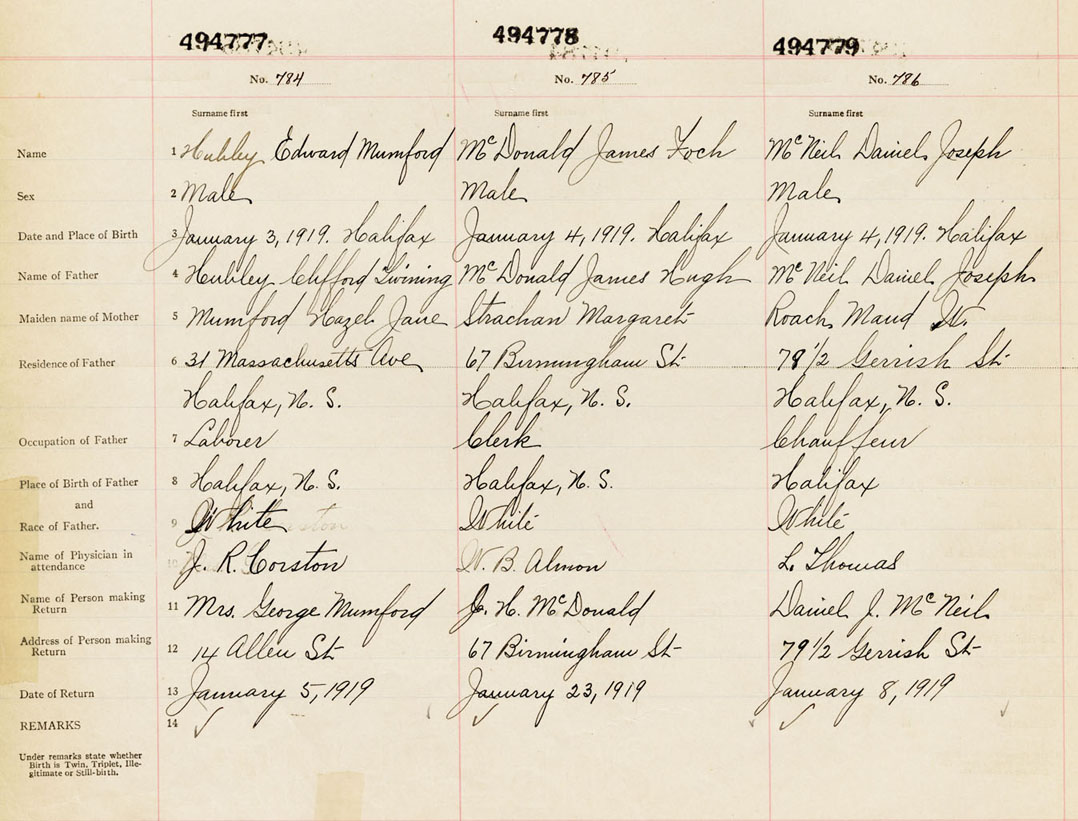 494777 494778 494779
No. 784 No. 785 No. 786
Surname first Surname first Surname first
Name 1 Hubley Edward Mumford McDonald James Foch McNeil Daniel Joseph
Sex 2 Male Male Male
Date and Place of Birth 3 January 3, 1919. Halifax January 4, 1919. Halifax January 4, 1919. Halifax
Name of Father 4 Hubley Clifford Twining McDonald James Hugh McNeil Daniel Joseph
Maiden name of Mother 5 Mumford Hazel Jane Strachan Margaret Roach Maud W.
Residence of Father 6 31 Massachusetts Ave 67 Birmingham St 79 1/2 Gerrish St
Halifax, N. S. Halifax, N. S. Halifax, N. S.
Occupation of Father 7 Laborer Clerk Chauffeur
Place of Birth of Father 8 Halifax, N. S. Halifax, N. S. Halifax
and
Race of Father. 9 White White White
Name of Physician in
attendance 10 J. R. Corston W. B. Almon L. Thomas
Name of Person making
Return 11 Mrs. George Mumford J. H. McDonald Daniel J. McNeil
Address of Person making
Return 12 14 Allen St 67 Birmingham St 79 1/2 Gerrish St
Date of Return 13 January 5, 1919 January 23, 1919 January 8, 1919
REMARKS 14
Under remarks state whether
Birth is Twin, Triplet, Ille-
gitimate or Still-birth.